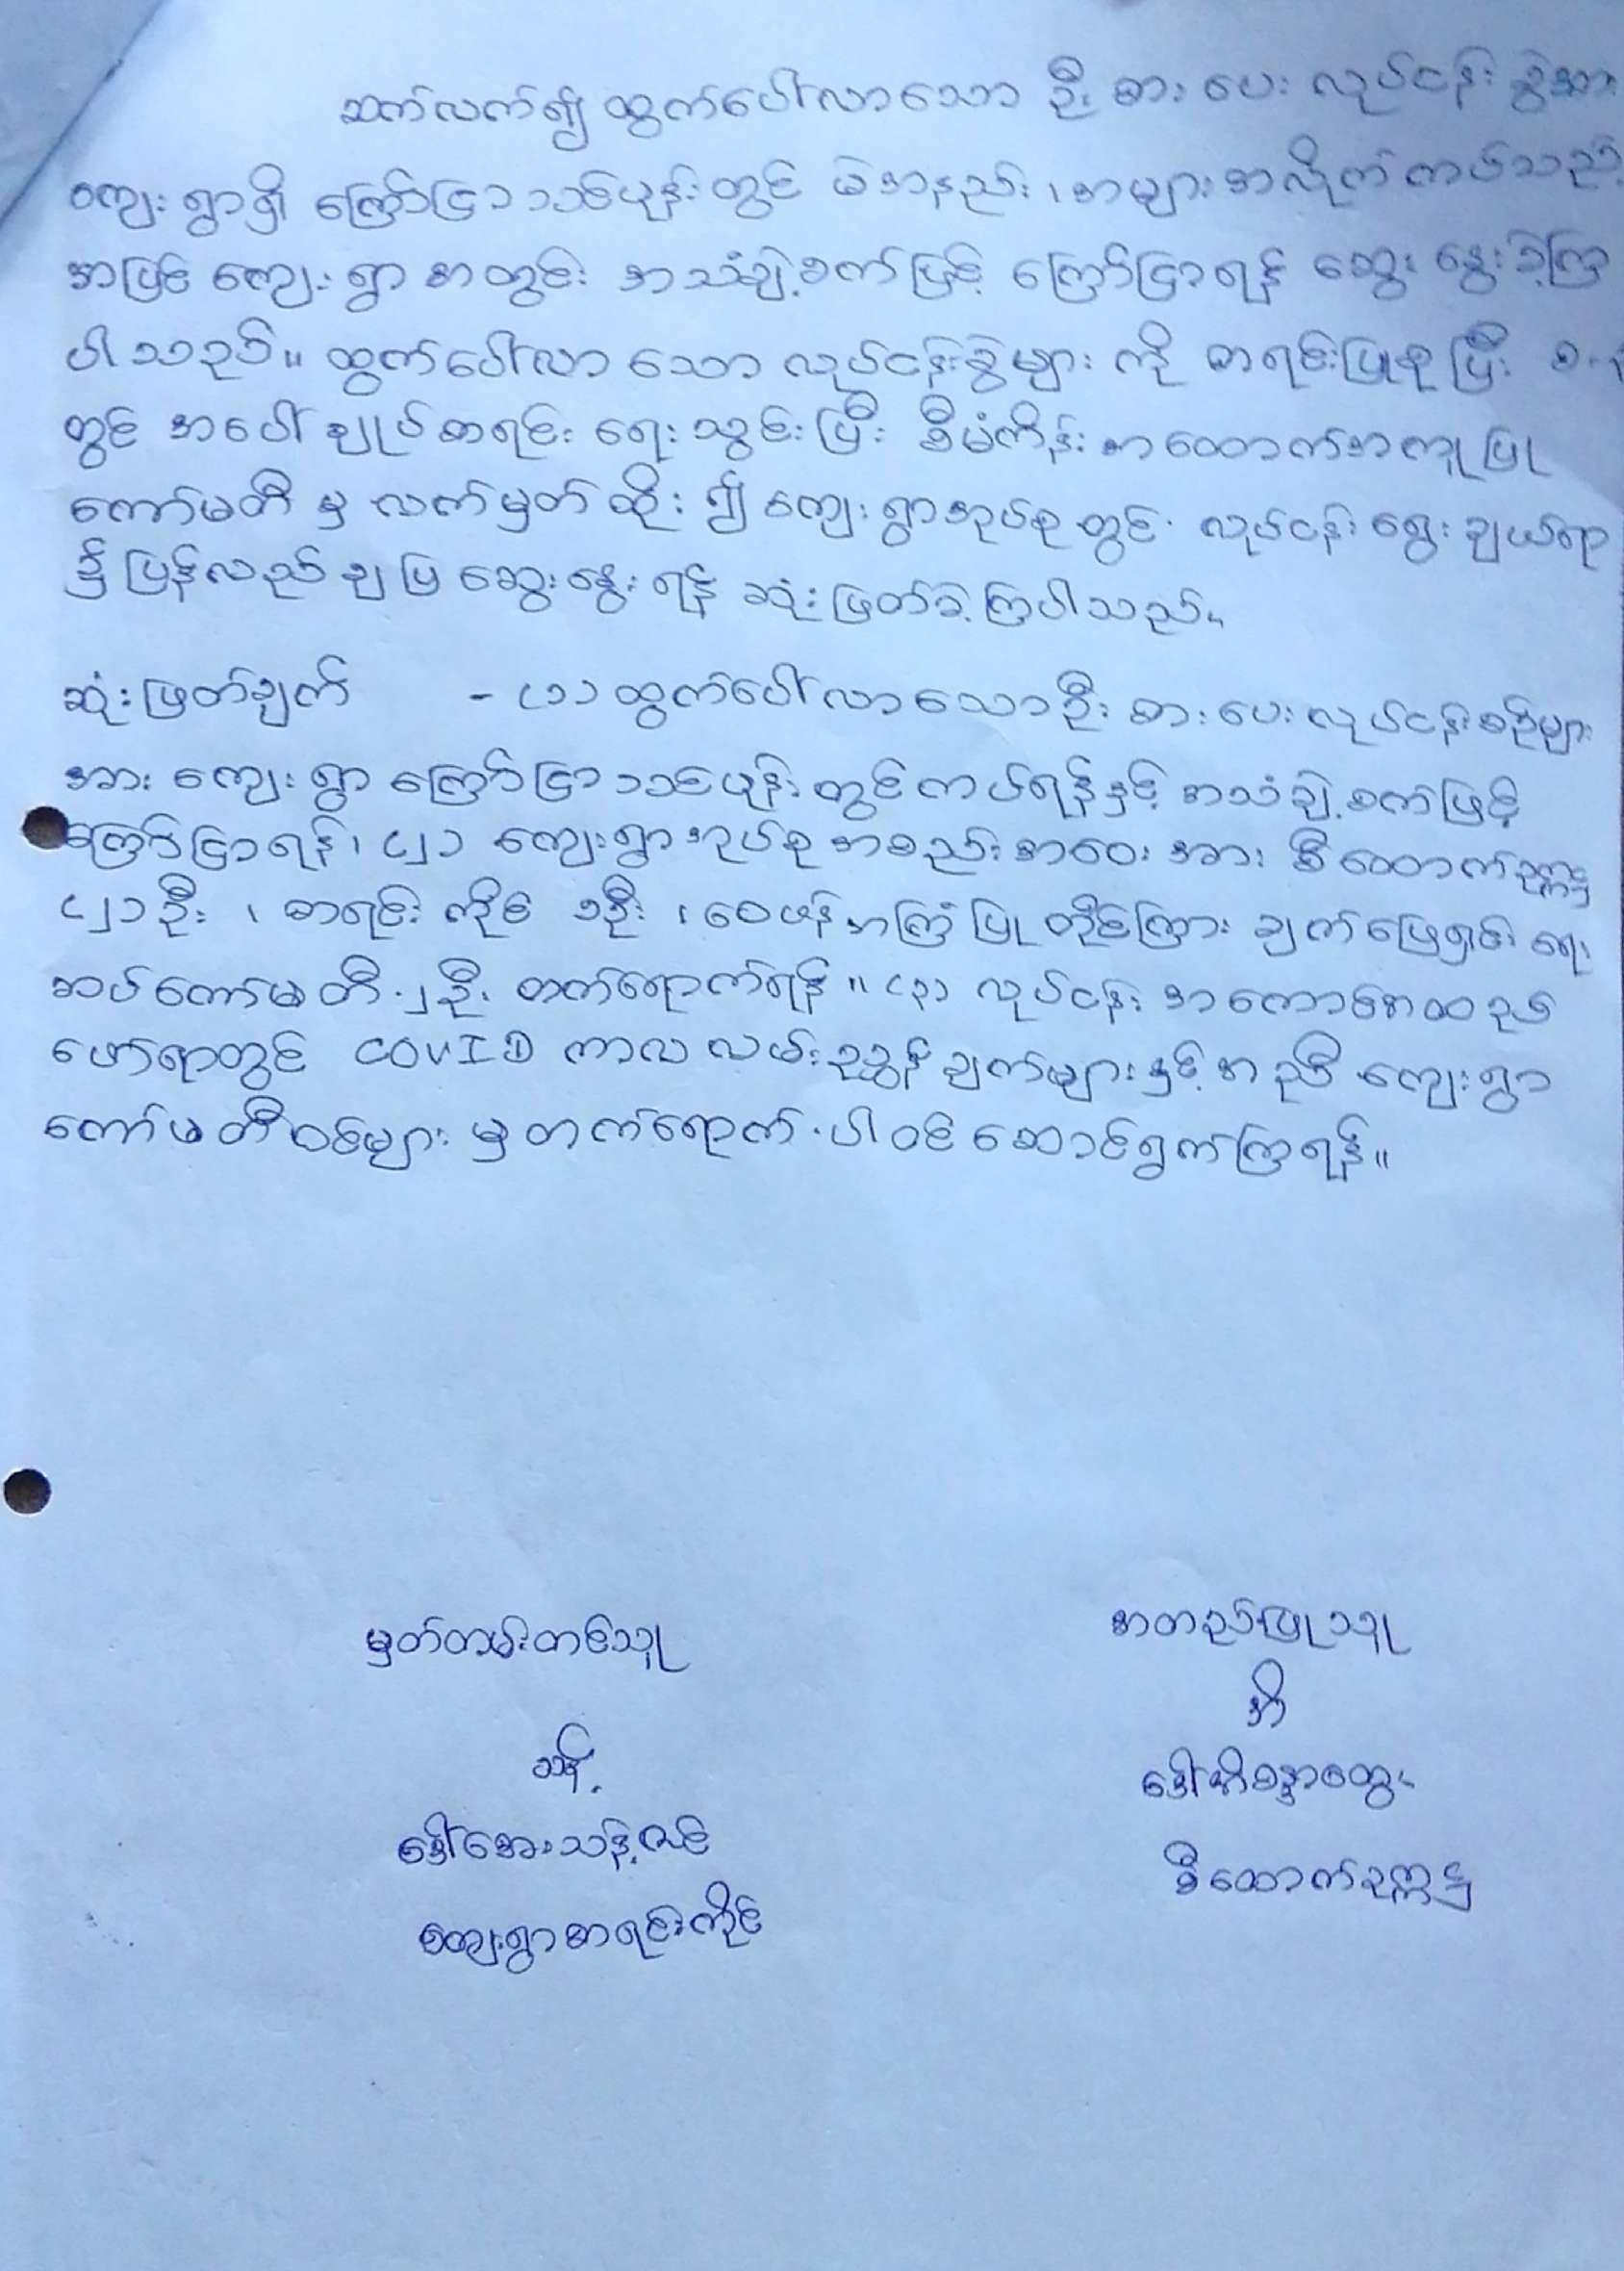 ဆက်လက်၍ ထွက်ပေါ်လာသော ဦးစားပေး လုပ်ငန်းခွဲအား
ကျေးရွာရှိ ကြော်ငြာသစ်ပုန်းတွင် မဲအနည်း၊ အများအလိုက် ကပ်သည့်
အပြင် ကျေးရွာအတွင်း အသံချဲ့စက်ဖြင့် ကြော်ငြာရန် ဆွေးနွေးခဲ့ကြ
ပါသည်။ ထွက်ပေါ်လာသော လုပ်ငန်းခွဲများကို စာရင်းပြုစုပြီး
တွင် အပေါ်ချုပ်စာရင်း ရေးသွင်းပြီး စီမံကိန်းအထောက်အကူပြု
ကော်မတီမှ လက်မှတ်ထိုး၍ ကျေးရွာအုပ်စုတွင် လုပ်ငန်းရွေးချယ်ရာ
၌ ပြန်လည်ချပြဆွေးနွေးရန် ဆုံးဖြတ်ခဲ့ကြပါသည်။
ဆုံးဖြတ်ချက် - (၁) ထွက်ပေါ်လာသော ဦးစားပေးလုပ်ငန်းစဉ်များ
အား ကျေးရွာ ကြော်ငြာသစ်ပုန်းတွင် ကပ်ရန်နှင့် အသံချဲ့စက်ဖြင့်
ကြော်ငြာရန်၊ (၂) ကျေးရွာအုပ်စု အစည်းအဝေးအား စီထောက်ဥက္ကဋ္ဌ
(၂) ဦး၊ စာရင်းကိုင် ၁ဦး၊ ဝေဖန်အကြံပြုတိုင်ကြားချက်ဖြေရှင်းရေး
ဆပ်ကော်မတီ ၂ ဦး တက်ရောက်ရန်။ (၃) လုပ်ငန်းအကောင်အထည်
ဖော်ရာတွင် COVID ကာလ လမ်းညွှန်ချက်များနှင့်အညီ ကျေးရွာ
ကော်မတီဝင်များမှ တက်ရောက် ပါဝင်ဆောင်ရွက်ကြရန်။
မှတ်တမ်းတင်သူ
အတည်ပြုသူ
သန့်
အိ
ဒေါ်အေးသန့်ဇင်
ဒေါ်အိစန္ဒာထွေး
ကျေးရွာစာရင်းကိုင်
စီထောက်ဥက္ကဋ္ဌ